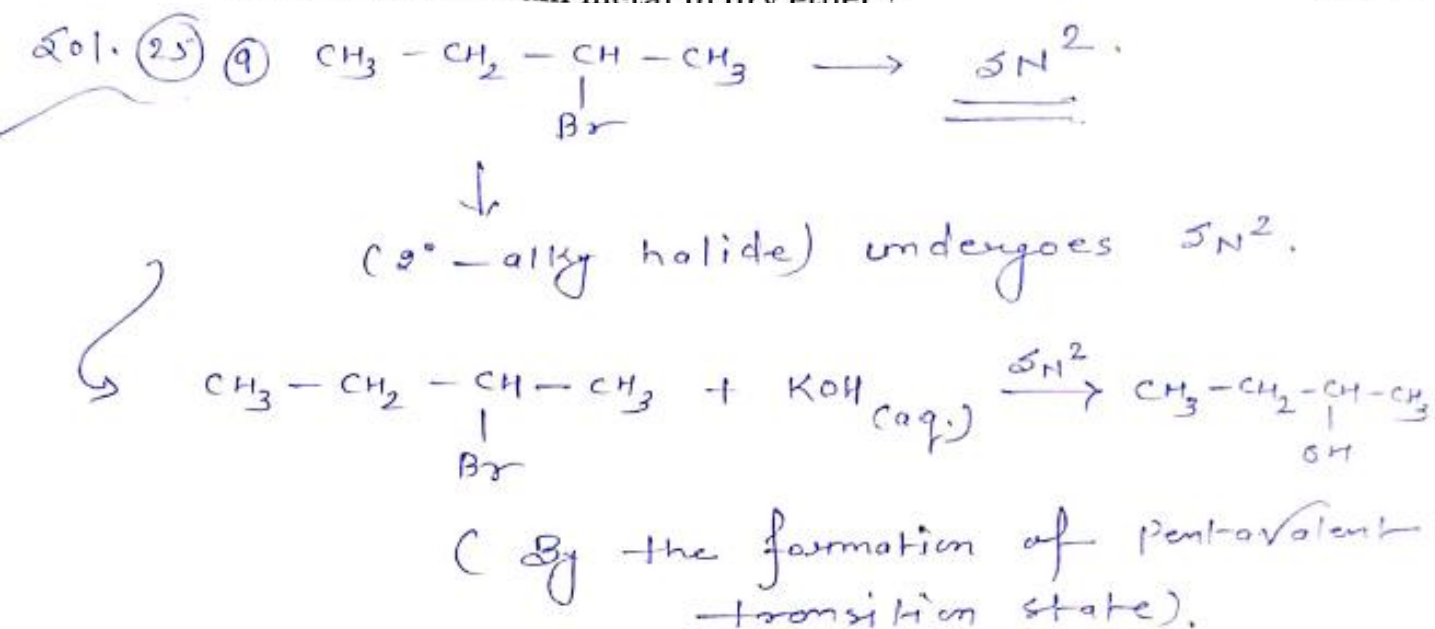 Sol. (25) (a) CH3 - CH2 - CH - CH3 → SN2.
Br
↓
(2° - alky halide) undergoes SN2.
CH3 - CH2 - CH - CH3 + KOH (aq.) SN2 → CH3 - CH2 - CH - CH3
Br
OH
( By the formation of pentavalent
transition state).